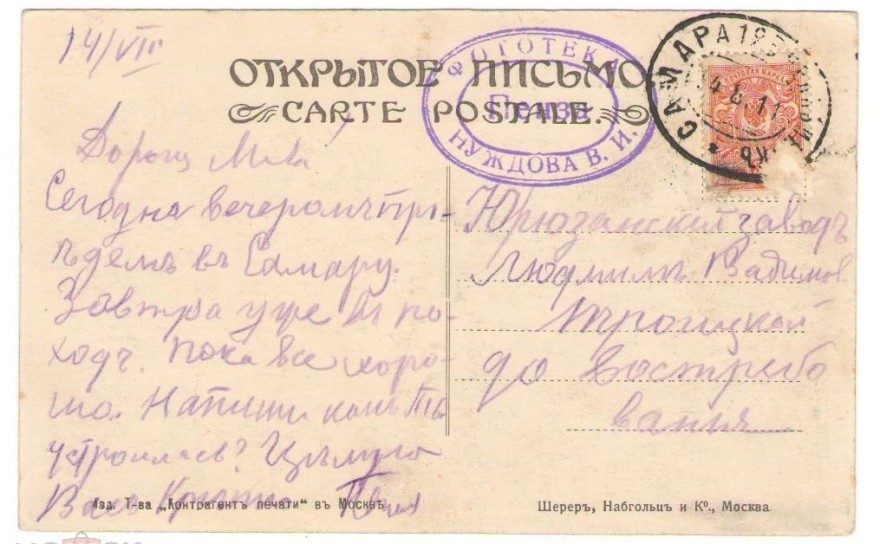 14/VIII
ОТКРЫТОЕ ПИСЬМО
CARTE POSTALE.
ФОТОТЕК
Пенза
НУЖДОВА В. И.
САМАРА
Сегодня вечеромъ прі-
ѣдемъ въ Самару.
Завтра утре въ по-
ходъ. Пока все хоро-
шо. Напиши какъ ты
устроилась? Цѣлую
Васъ Крѣпко
Юрюзанскій заводъ
Людмилѣ Вадимов
Троицкой
до востребо
ванія
Изд. Т-ва „Контрагентъ печати" въ Москвѣ.
Шереръ, Набгольцъ и Ко., Москва.